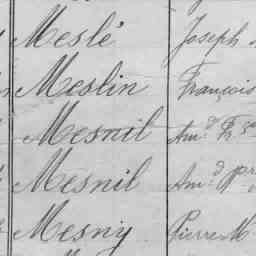 Meslé Joseph
Meslin François
Mesnil Am.d
Mesnil Am.d
Mesny Pierre M